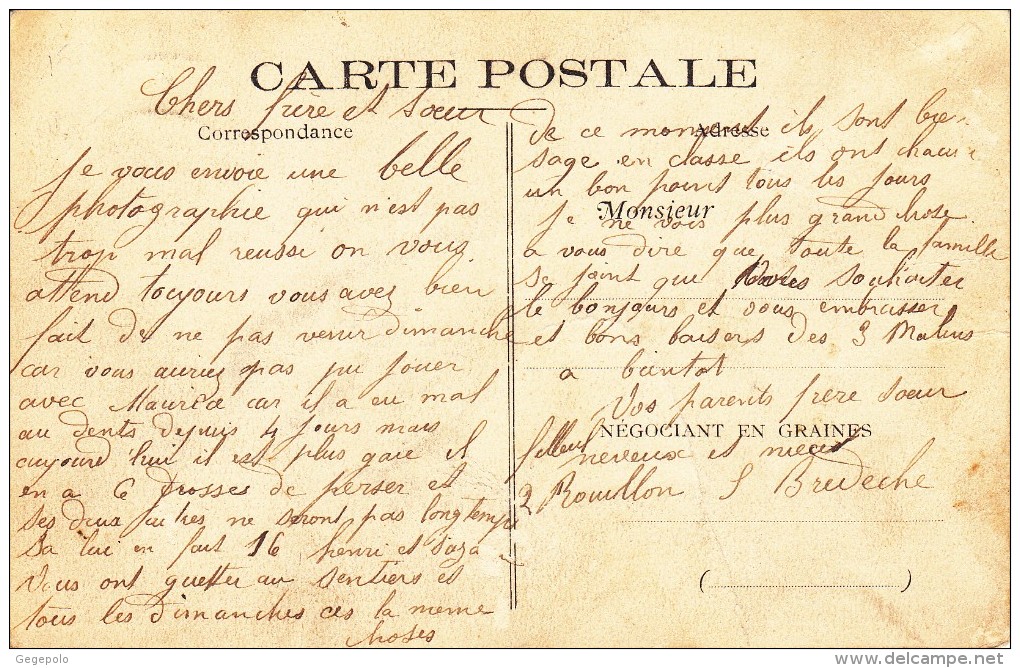 CARTE POSTALE
Chers frère et sœur
Correspondance
je vous envoie une belle
photographie qui n'est pas
trop mal reussie on vous
attend toujours vous avez bien
fait de ne pas venir dimanche
car vous auriez pas pu jouer
avec Maurice car il a eu mal
au dents depuis 4 jours mais
aujourd'hui il est plus gaie il
en a 6 grosses de perser et
ses deux autres ne seront pas longtemps
sa lui en fait 16 henri et
vous ont guetter au sentiers et
tous les dimanches ces la meme
choses
Adresse
de ce moment ils sont bien
sage en classe ils ont chacun
un bon point tous les jours
Monsieur
je ne vois plus grand chose
a vous dire que toute la famille
se joint que vous souhaiter
le bonjours et vous embrasser
et bons baisers des 3
a bientot
Vos parents frere sœur
NÉGOCIANT EN GRAINES
filleul neveux et nieces
Rouillon Bredeche
( )
Gegepolo
delcampe.net